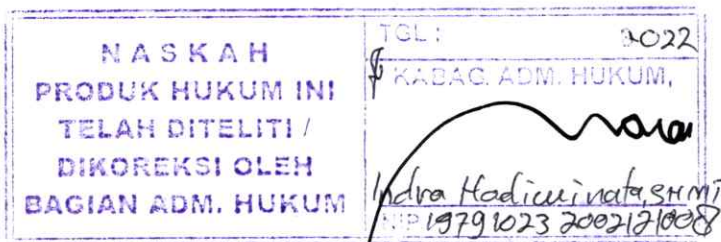 NASKAH
PRODUK HUKUM INI
TELAH DITELITI /
DIKOREKSI OLEH
BAGIAN ADM. HUKUM
TGL : 2022
KABAG. ADM. HUKUM,
Indra Hadiwinata, SH MT
NIP 19791023 200212 1 008